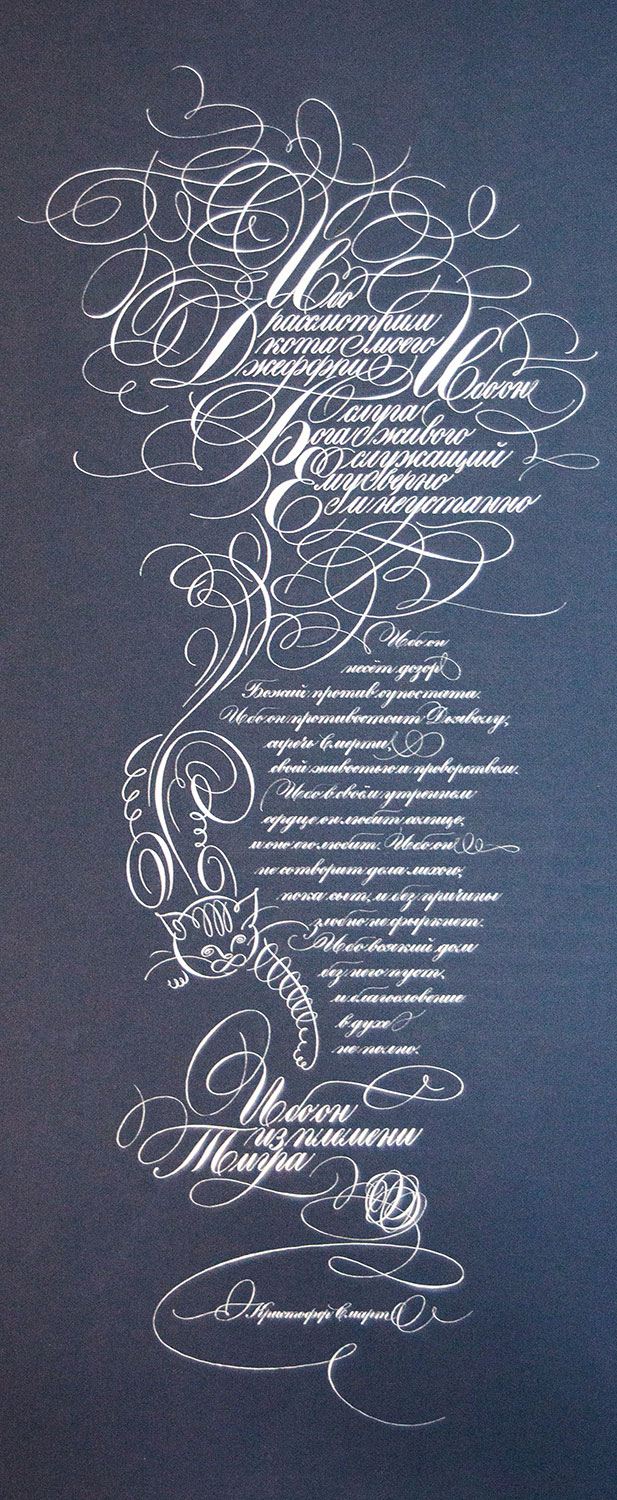 Ибо
рассмотрим
кота моего
Джеффри Ибо он
слуга
Бога живого
служащий
Ему верно
и неустанно
Ибо он
несёт дозор
Божий против супостата.
Ибо он противостоит Дьяволу,
сиречь Смерти,
свой живостью и проворством.
Ибо в своём утреннем
сердце он любит солнце,
и оно его любит. Ибо он
не сотворит дела лихого,
пока сыт, и без причины
злобно не фыркнет.
Ибо всякий дом
без него пуст,
и благословение
в духе
не полно.
Ибо он
из племени
Тигра
Кристофер Смарт